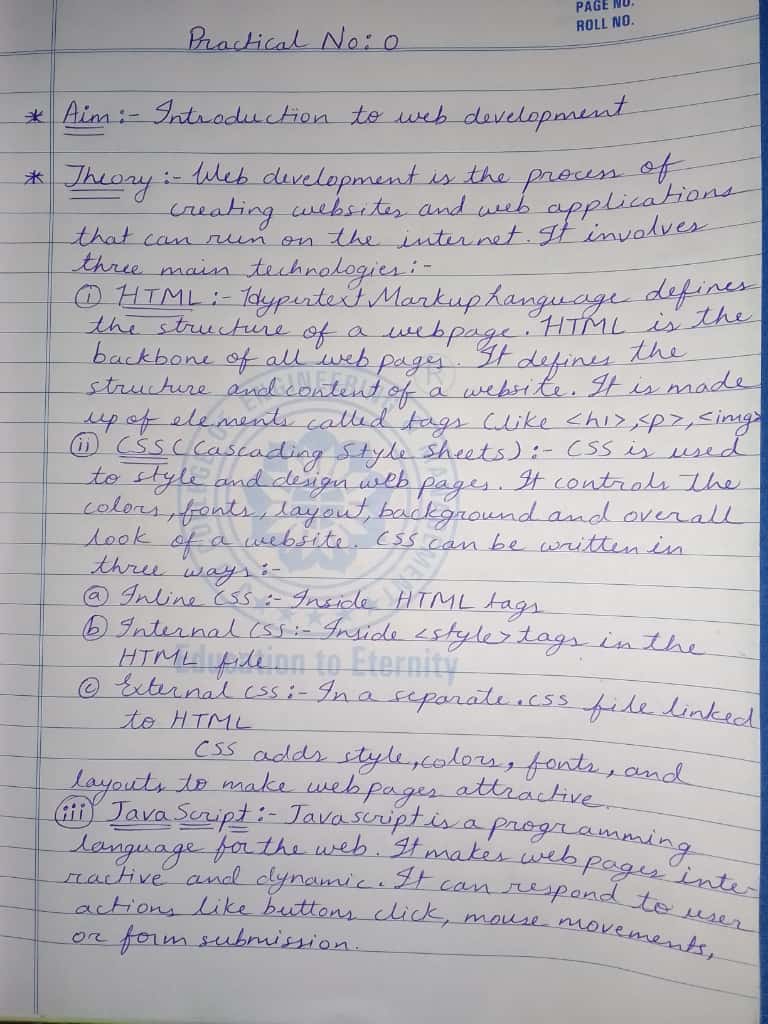 PAGE NO.
ROLL NO.
Practical No: 0
* Aim :- Introduction to web development
* Theory :- Web development is the process of
creating websites and web applications
that can run on the internet. It involves
three main technologies :-
(i) HTML :- Hypertext Markup Language defines
the structure of a webpage. HTML is the
backbone of all web pages. It defines the
structure and content of a website. It is made
up of elements called tags (like <h1>, <p>, <img>
(ii) CSS (Cascading Style Sheets) :- CSS is used
to style and design web pages. It controls the
colors, fonts, layout, background and overall
look of a website. CSS can be written in
three ways :-
(a) Inline CSS :- Inside HTML tags
(b) Internal CSS :- Inside <style> tags in the
HTML file
Education to Eternity
(c) External CSS :- In a separate .css file linked
to HTML
CSS adds style, colors, fonts, and
layouts to make web pages attractive.
(iii) JavaScript :- Javascript is a programming
language for the web. It makes web pages inte-
ractive and dynamic. It can respond to user
actions like buttons click, mouse movements,
or form submission.